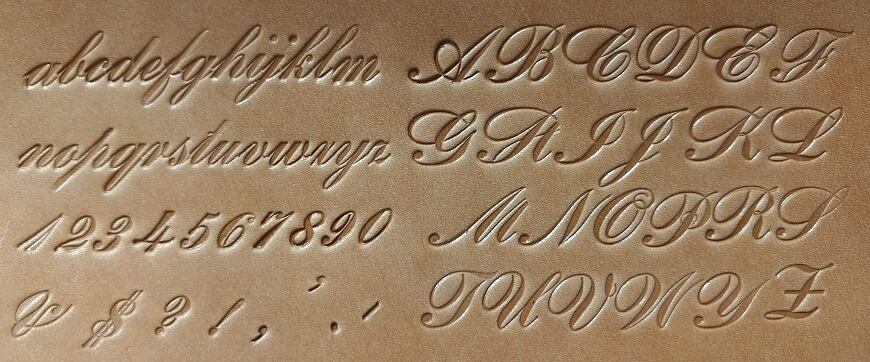 abcdefghijklm
nopqrstuvwxyz
1234567890
& $ ? ! , ' . -
ABCDEF
GHIJKL
MNOPRS
TUVWYZ